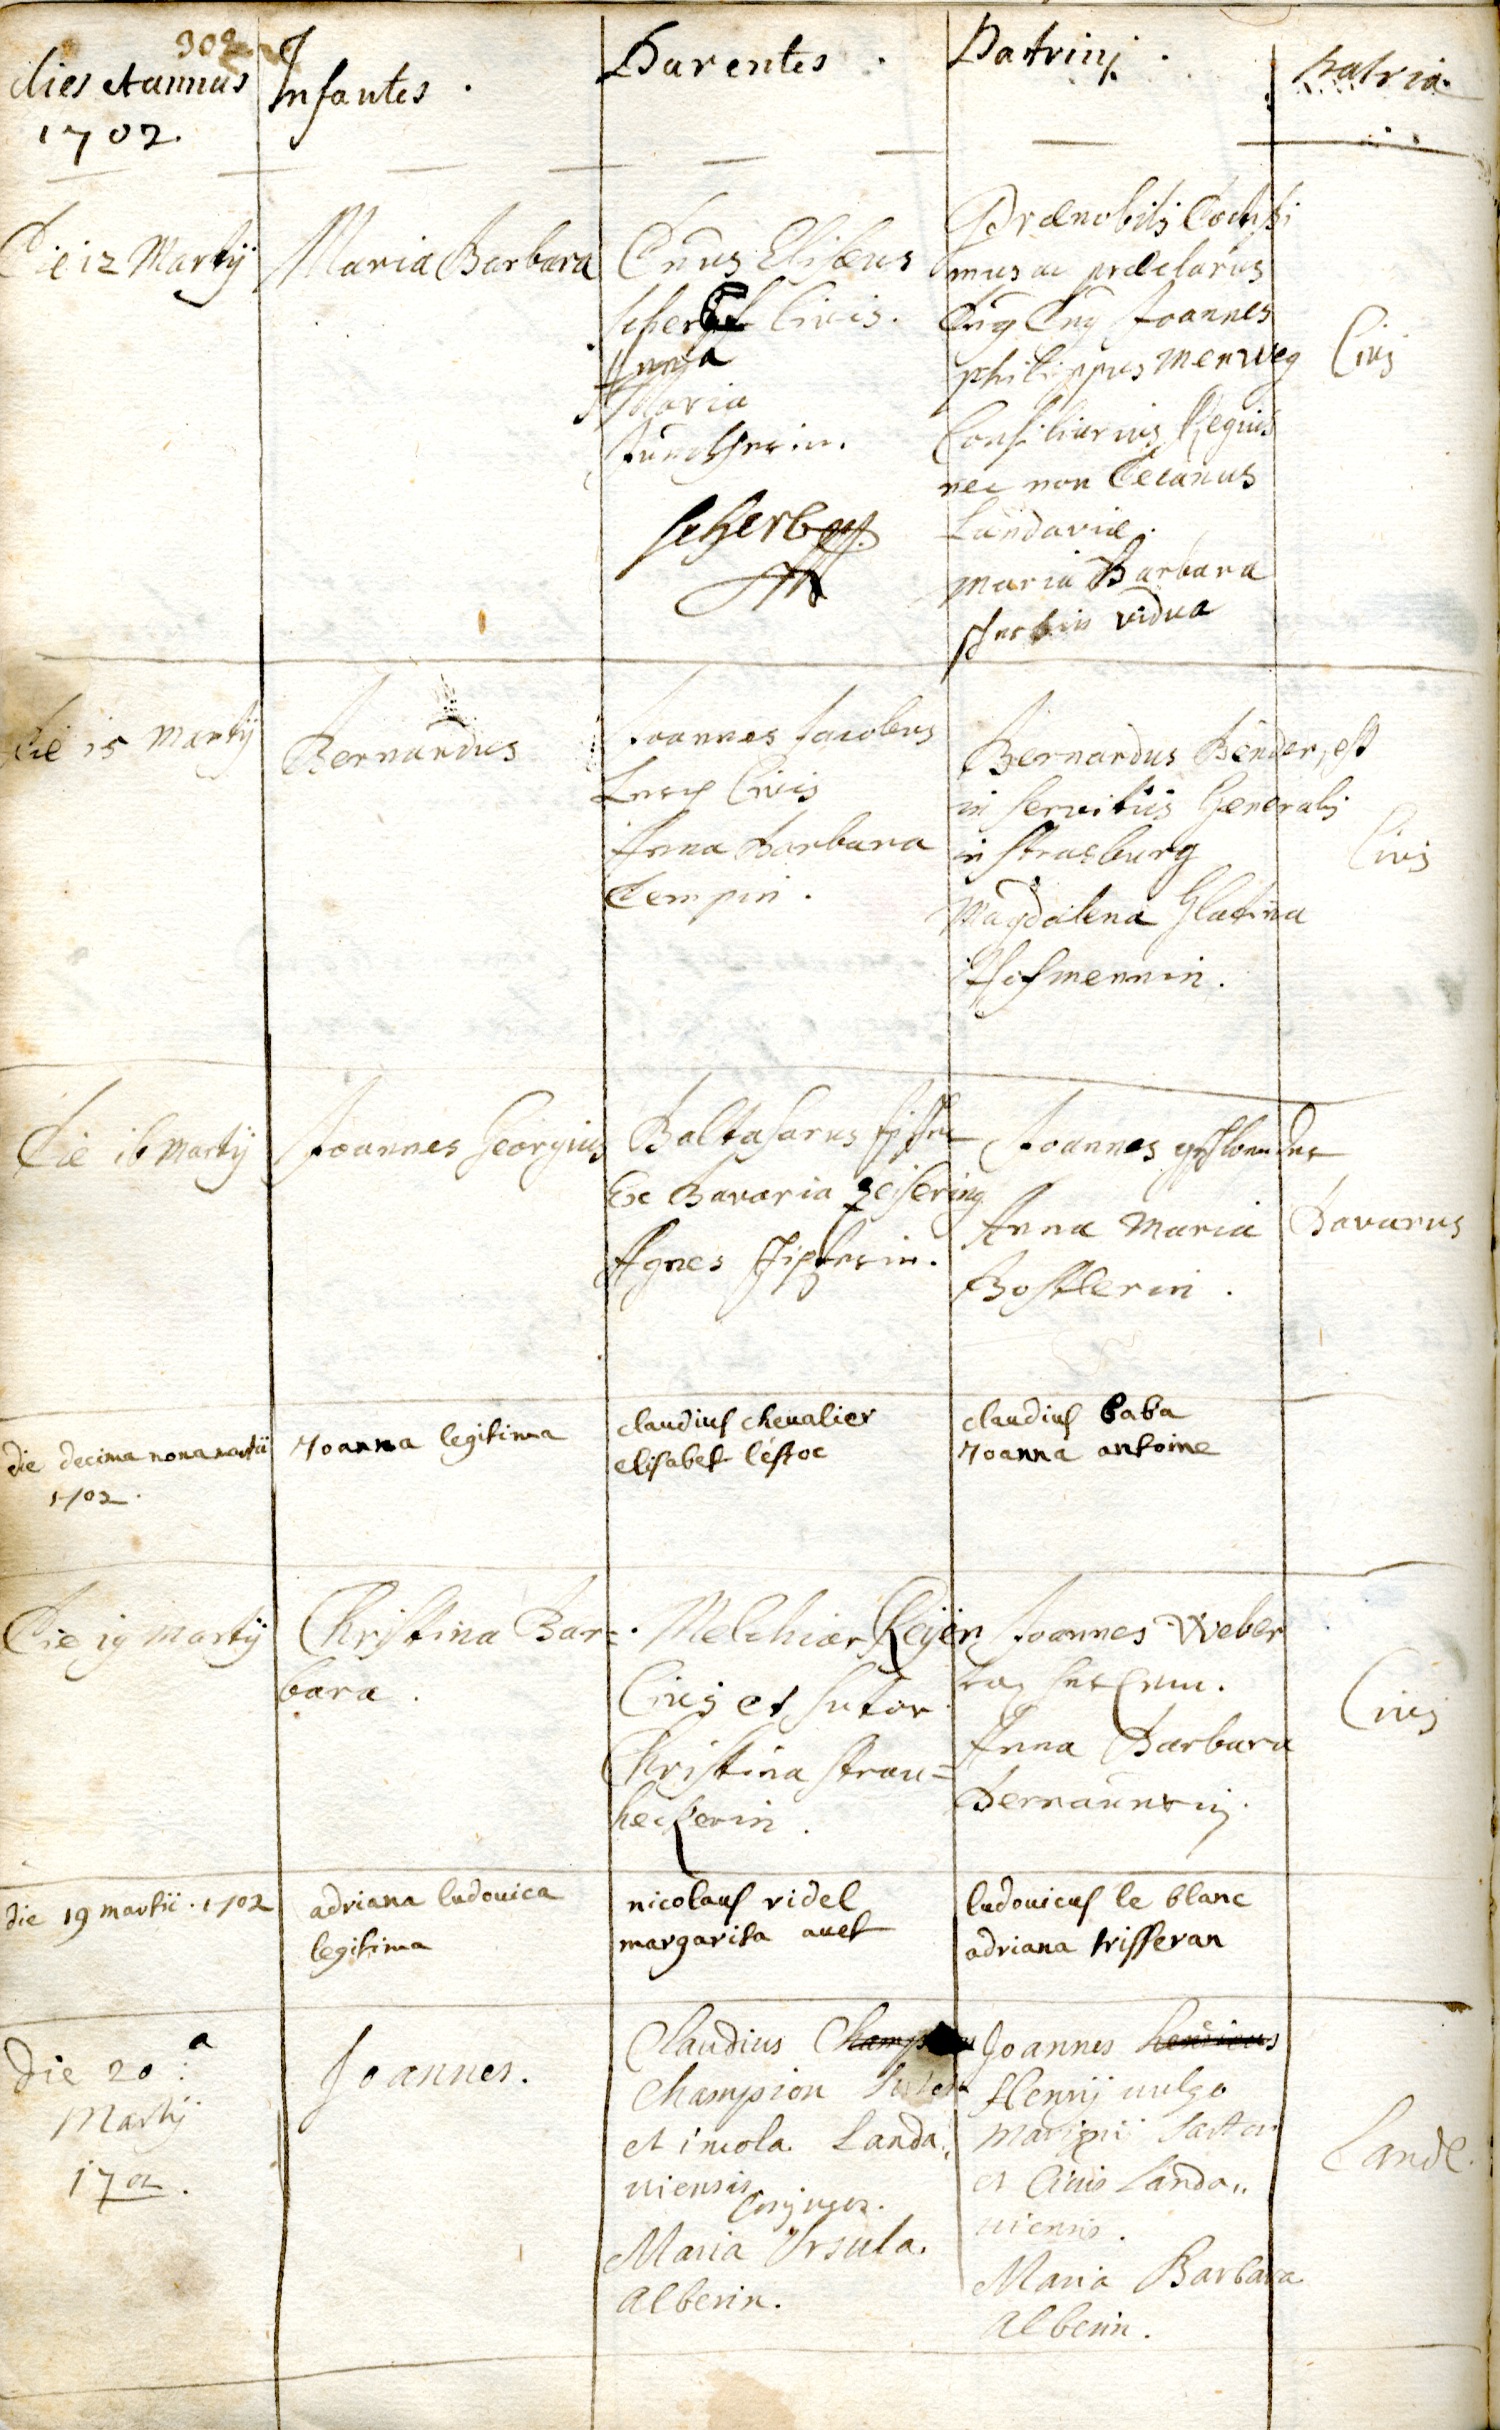 302
dies et annus
1702.
Infantes.
Parentes.
Patrinj.
Patria.
Die 12 Martij
Maria Barbara
Dnus Elisæus
Civis.
Anna
Maria
Scherb
Prænobilis Doctissi
mus ac præclarus
Dng Dng Joannes
philippus Merweg
Consiliarius Regius
nec non Decanus
Landaviæ.
Maria Barbara
vidua
Civis
Die 15 Martij
Bernardus
Joannes Jacobus
Civis
Anna Barbara
Dempin.
Bernardus Bender, est
in servitiis Generalis
in strasburg
Magdalena
Hofmennin.
Civis
Die 16 Martij
Joannes Georgius
Baltasarus
Ex Bavaria
Agnes
Joannes
Anna Maria
Bavarus
die decima nona martii
1702.
Joanna legitima
claudius chevalier
elisabet léstoc
claudius baba
Joanna antoine
Die 19 Martij
Christina Bar=
bara.
Melchior Keijer
Civis et sutor
Christina strau=
heckerin.
Joannes Weber
Anna Barbara
Civis
die 19 martii. 1702
adriana ludovica
legitima
nicolaus ridel
margarita auet
ludovicus le blanc
adriana trisseran
Die 20.a
Martij
1702.
Joannes.
Claudius
Champion
et incola Landa„
uiensis
Conjuges.
Maria Ursula.
Alberin.
Joannes henricus
Henrij uulgo
sartor
et Ciuis Landa„
uiensis.
Maria Barbara
Alberin.
Land.